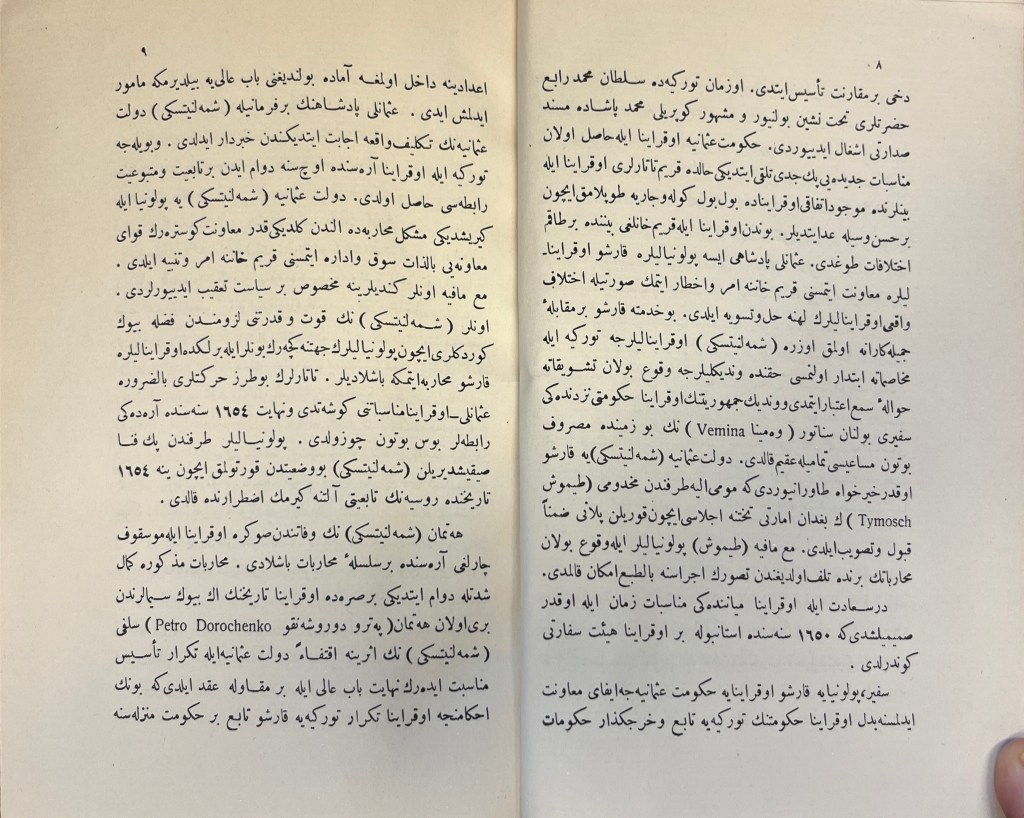 ٨
دخی بر مقارنت تأسیس ایتدی. اوزمان تورکیه‌ده سلطان محمد رابع
حضرتلری تخت نشین بولنیور و مشهور کوپریلی محمد پاشاده مسند
صدارتی اشغال ایدییوردی. حکومت عثمانیه اوقراینا ایله حاصل اولان
مناسبات جدیده‌یی پك جدی تلقی ایتدیکی حالده قریم تاتارلری اوقراینا ایله
بینلرنده موجود اتفاقی اوقرایناده بول بول کوله و جاریه طوپلامق ایچون
بر حسن وسیله عد ایتدیلر. بوندن اوقراینا ایله قریم خانلغی بیننده بر طاقم
اختلافات طوغدی. عثمانلی پادشاهی ایسه پولونیالیلره قارشو اوقراینا-
لیلره معاونت ایتمسنی قریم خاننه امر و اخطار ایتمك صورتیله اختلاف
واقعی اوقراینالیلرك لهنه حل و تسویه ایلدی. بو خدمته قارشو بر مقابلۀ
جمیله‌کارانه اولمق اوزره (شمه‌لنیتسکی) اوقراینالیلرجه تورکیه ایله
مخاصماته ابتدار اولنمسی حقنده وندیکلیلرجه وقوع بولان تشویقاته
حوالۀ سمع اعتبار ایتمدی و وندیك جمهوریتنك اوقراینا حکومتی نزدنده‌کی
سفیری بولنان سناتور (وه‌مینا Vemina) نك بو زمینده مصروف
بوتون مساعیسی تمامیله عقیم قالدی. دولت عثمانیه (شمه‌لنیتسکی) یه قارشو
اوقدر خیرخواه طاورانیوردی که مومی الیه طرفندن مخدومی (طیموش
Tymosch) ك بغدان امارتی تختنه اجلاسی ایچون قوریلن پلانی ضمناً
قبول و تصویب ایلدی. مع مافیه (طیموش) پولونیالیلر ایله وقوع بولان
محارباتك برنده تلف اولدیغندن تصورك اجراسنه بالطبع امکان قالمدی.
درسعادت ایله اوقراینا میاننده‌کی مناسبات زمان ایله اوقدر
صمیمیلشدی که ١٦٥٠ سنه‌سنده استانبوله بر اوقراینا هیئت سفارتی
کوندرلدی .
سفیر، پولونیایه قارشو اوقراینایه حکومت عثمانیه‌جه ایفای معاونت
ایدلمسنه بدل اوقراینا حکومتنك تورکیه‌یه تابع و خرجکذار حکومات
٩
اعدادینه داخل اولمغه آماده بولندیغنی باب عالی‌یه بیلدیرمکه مأمور
ایدلمش ایدی . عثمانلی پادشاهنك بر فرمانیله (شمه‌لنیتسکی) دولت
عثمانیه‌نك تکلیف واقعه اجابت ایتدیکندن خبردار ایدلدی . وبویله‌جه
تورکیه ایله اوقراینا آره‌سنده اوچ سنه دوام ایدن بر تابعیت و متبوعیت
رابطه‌سی حاصل اولدی. دولت عثمانیه (شمه‌لنیتسکی) یه پولونیا ایله
کیریشدیکی مشکل محاربه‌ده الندن کلدیکی قدر معاونت کوستره‌رك قوای
معاونه‌یی بالذات سوق و اداره ایتمسنی قریم خاننه امر و تنبیه ایلدی .
مع مافیه اونلر کندیلرینه مخصوص بر سیاست تعقیب ایدییورلردی .
اونلر (شمه‌لنیتسکی) نك قوت و قدرتنی لزومندن فضله بیوك
کوردکلری ایچون پولونیالیلرك جهتنه کچه‌رك بونلر ایله برلکده اوقراینالیلره
قارشو محاربه ایتمکه باشلادیلر . تاتارلرك بو طرز حرکتلری بالضروره
عثمانلی_اوقراینا مناسباتنی کوشه‌تدی ونهایت ١٦٥٤ سنه‌سنده آره‌ده‌کی
رابطه‌لر بوس بوتون چوزولدی . پولونیالیلر طرفندن پك فنا
صیقیشدیریلن (شمه‌لنیتسکی) بو وضعیتدن قورتولمق ایچون ینه ١٦٥٤
تاریخنده روسیه‌نك تابعیتی آلتنه کیرمك اضطرارنده قالدی .
هه‌تمان (شمه‌لنیتسکی) نك وفاتندن صوکره اوقراینا ایله موسقوف
چارلغی آره‌سنده بر سلسلۀ محاربات باشلادی . محاربات مذکوره کمال
شدتله دوام ایتدیکی بر صره‌ده اوقراینا تاریخنك اك بیوك سیمالرندن
بری اولان هه‌تمان (په‌ترو دوروشه‌نقو Petro Dorochenko) سلفی
(شمه‌لنیتسکی) نك اثرینه اقتفاءً دولت عثمانیه ایله تکرار تأسیس
مناسبت ایده‌رك نهایت باب عالی ایله بر مقاوله عقد ایلدی که بونك
احکامنجه اوقراینا تکرار تورکیه‌یه قارشو تابع بر حکومت منزله‌سنه